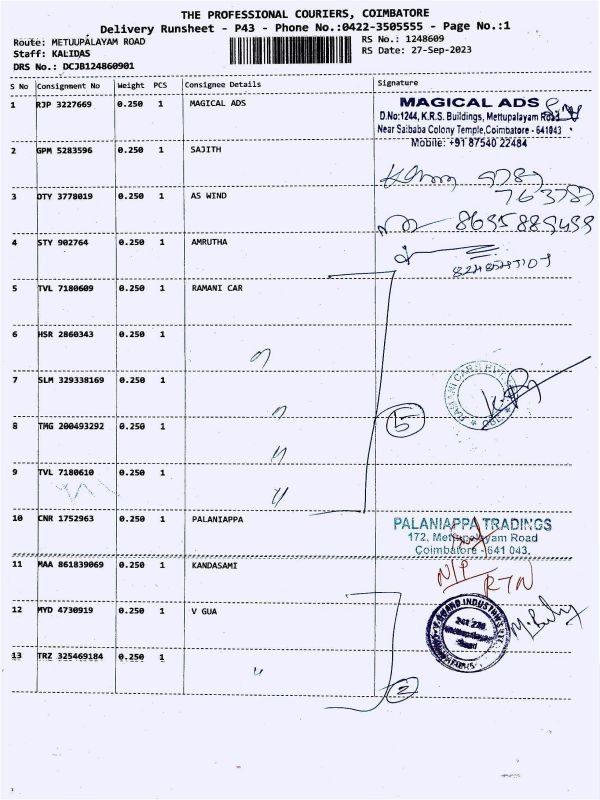 THE PROFESSIONAL COURIERS, COIMBATORE
Delivery Runsheet - P43 - Phone No.:0422-3505555 - Page No.:1
Route: METUUPALAYAM ROAD
RS No.: 1248609
Staff: KALIDAS
RS Date: 27-Sep-2023
DRS No.: DCJB124860901
S No Consignment No Weight PCS Consignee Details Signature
1 RJP 3227669 0.250 1 MAGICAL ADS
MAGICAL ADS
D.No:1244, K.R.S. Buildings, Mettupalayam Road
Near Saibaba Colony Temple,Coimbatore - 641043
Mobile: +91 87540 22484
2 GPM 5283596 0.250 1 SAJITH
3 DTY 3778019 0.250 1 AS WIND
4 STY 902764 0.250 1 AMRUTHA
5 TVL 7180609 0.250 1 RAMANI CAR
6 HSR 2860343 0.250 1 〃
7 SLM 329338169 0.250 1 〃
RAMANI CARS PVT
5
8 TMG 200493292 0.250 1 〃
9 TVL 7180610 0.250 1 〃
10 CNR 1752963 0.250 1 PALANIAPPA
PALANIAPPA TRADINGS
172, Mettupalayam Road
Coimbatore - 641 043.
11 MAA 861839069 0.250 1 KANDASAMI
N/P RTN
12 MYD 4730919 0.250 1 V GUA
13 TRZ 325469184 0.250 1 〃
2